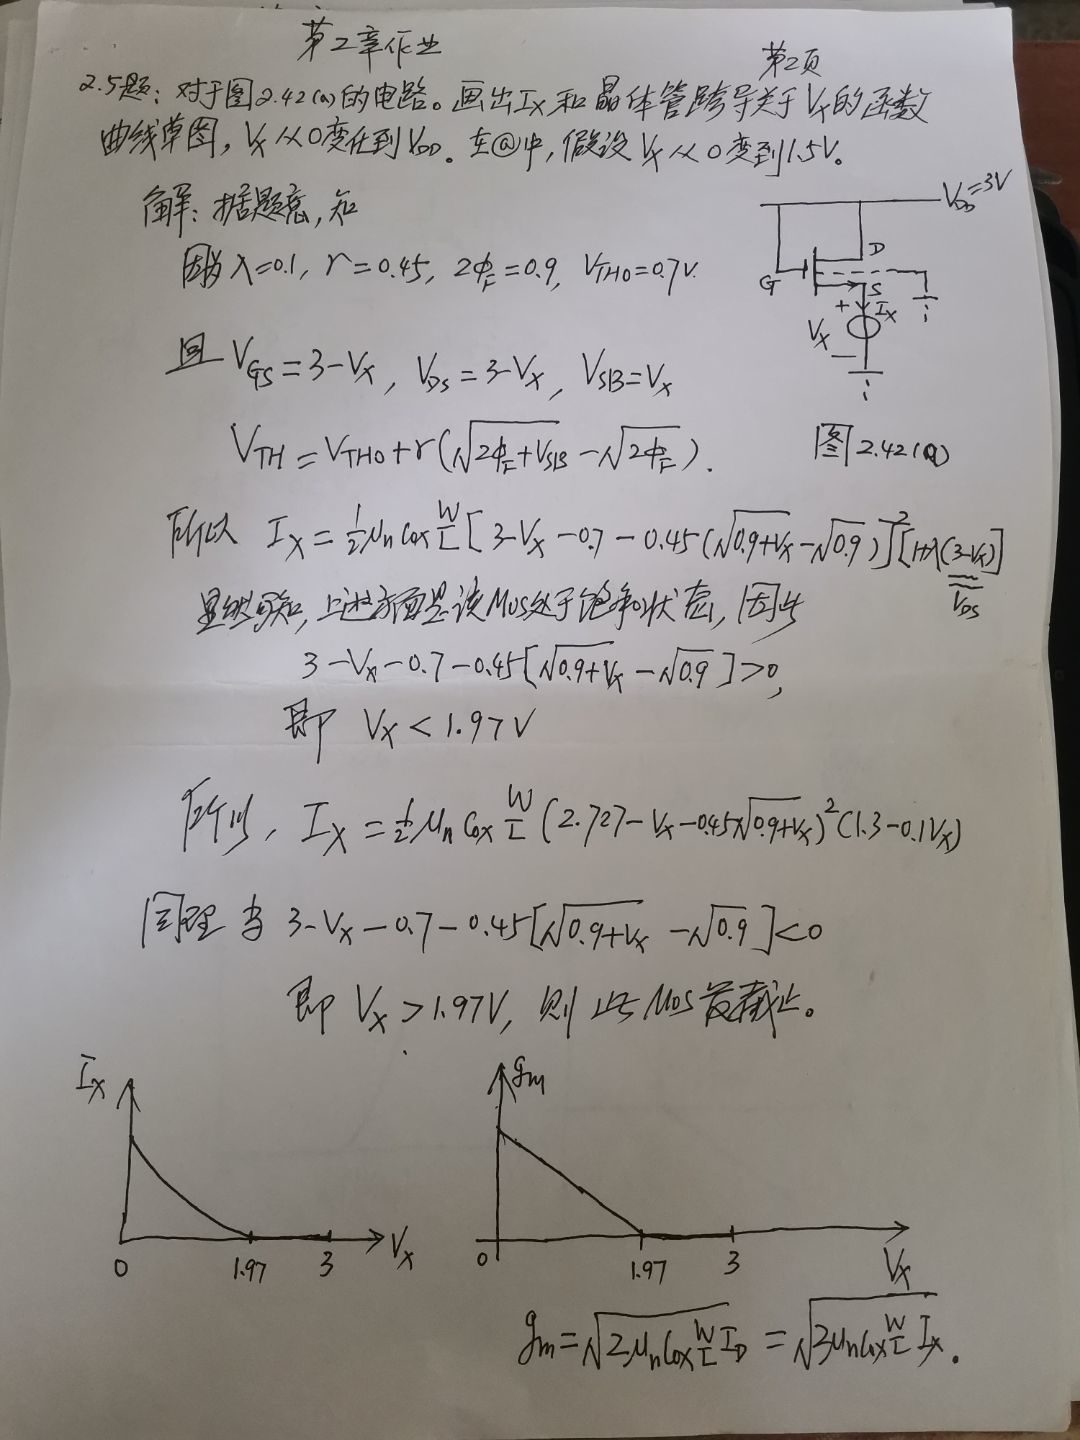 第2章作业
第2页
2.5题：对于图2.42(a)的电路。画出Ix和晶体管跨导关于Vx的函数
曲线草图，Vx从0变化到VDD。在@中，假设Vx从0变到1.5V。
解：据题意，知
λ=0.1, r=0.45, 2ΦF=0.9, VTH0=0.7V.
VDD=3V
G
D
S
+
Ix
Vx
−
图2.42(a)
且 VGS=3-Vx, VDS=3-Vx, VSB=Vx
VTH=VTH0+r(√(2ΦF+VSB)-√(2ΦF)).
所以 Ix=½μnCox W/L [3-Vx-0.7-0.45(√(0.9+Vx)-√0.9)]²[1+λ(3-Vx)]
VDS
显然可知，上述方面是该MOS处于饱和状态，因此
3-Vx-0.7-0.45[√(0.9+Vx)-√0.9]>0,
即 Vx<1.97V
所以, Ix=½μnCox W/L (2.727-Vx-0.45√(0.9+Vx))²(1.3-0.1Vx)
同理当 3-Vx-0.7-0.45[√(0.9+Vx)-√0.9]<0
即 Vx>1.97V, 则此MOS管截止。
Ix
0
1.97
3
Vx
gm
0
1.97
3
Vx
gm=√(2μnCox W/L ID) = √(3μnCox W/L Ix).